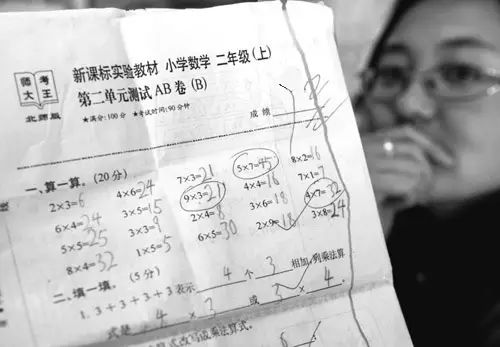 师考
大王
北师版
新课标实验教材 小学数学 二年级(上)
第二单元测试 AB 卷 (B)
★满分:100 分 ★考试时间:90 分钟
成绩
一、算一算。(20 分)
2×3=6 4×6=24 7×3=21 5×7=45 8×2=16
6×4=24 3×5=15 9×3=21 4×4=16 7×1=7
5×5=25 3×3=9 2×4=8 3×6=18 4×7=32
8×4=32 1×5=5 6×5=30 2×9=18 3×8=24
二、填一填。(5 分)
1. 3+3+3+3 表示 4 个 3 相加,列乘法算
式是 4 × 3 或 3 × 4 .
改写成乘法算式。